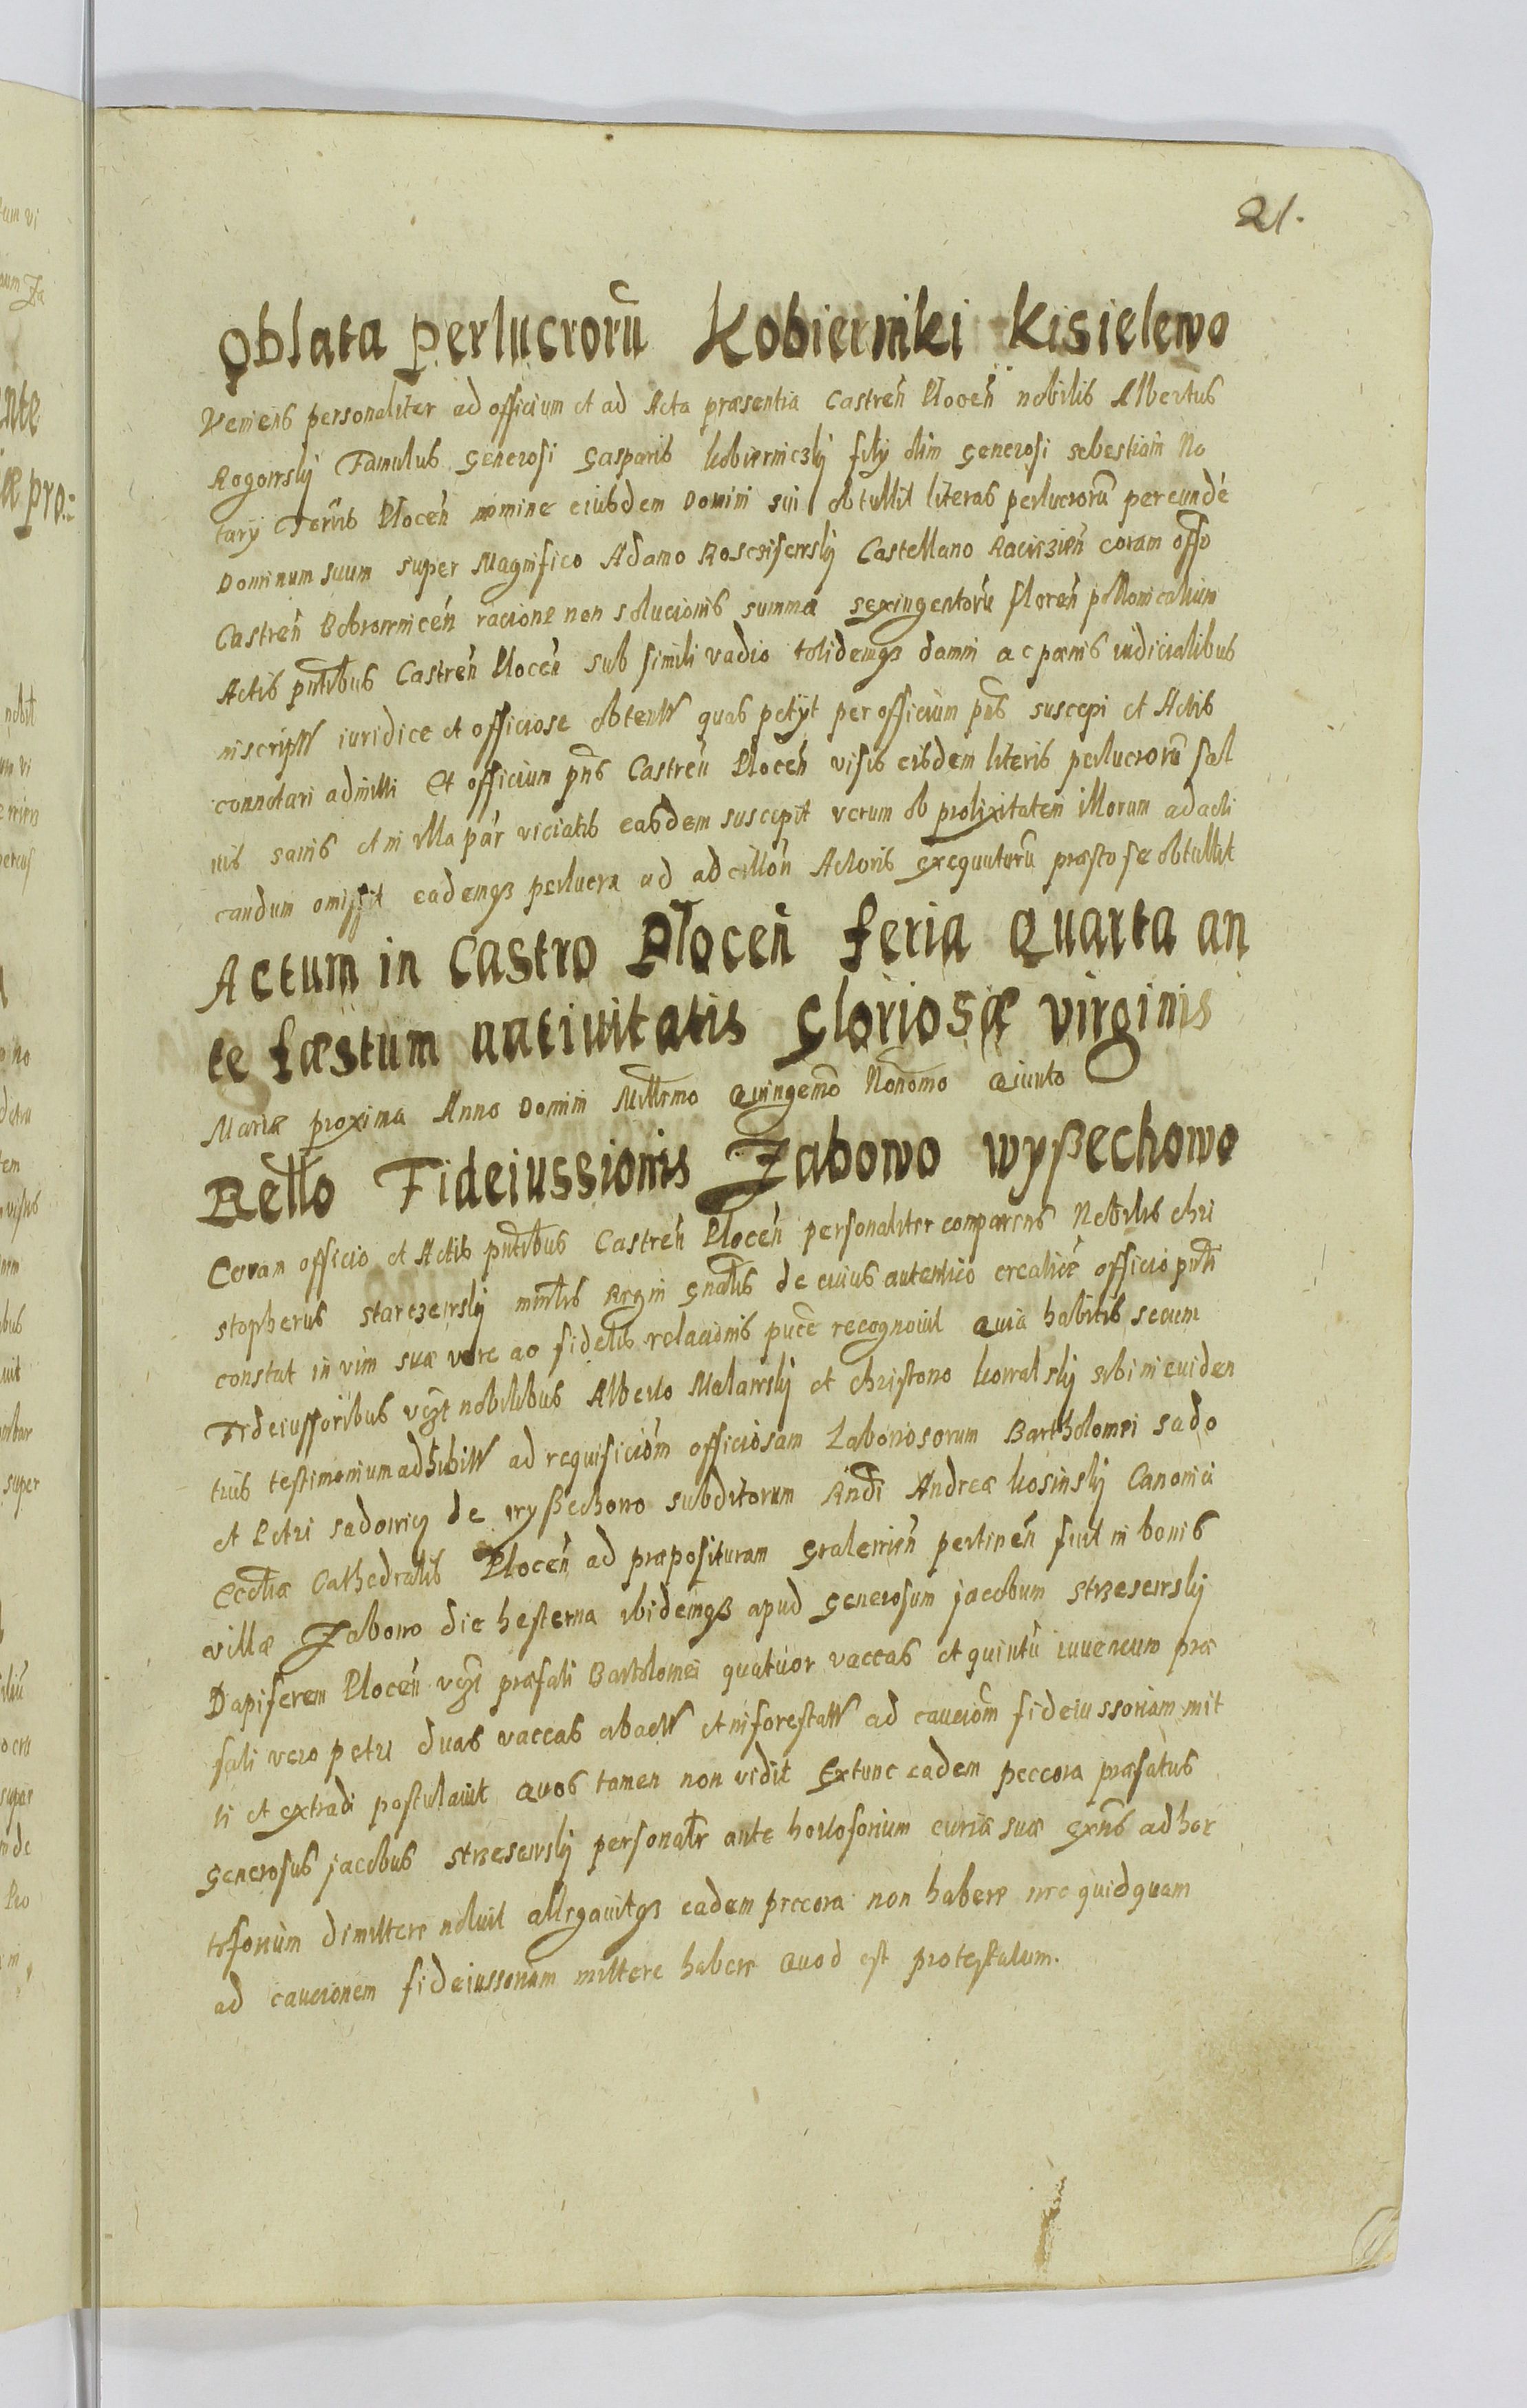 21.
Oblata perlucrorū Kobierniki Kisielewo
Veniens personaliter ad officium et ad Acta præsentia Castreñ Ploceñ nobilis Albertus
Rogowskÿ Famulus Generosi Gasparis Kobierniczkÿ filÿ olim Generosi sebestiani No
tarÿ Terris Ploceñ nomine eiusdem Domini sui obtullit literas perlucrorū per eundē
Dominum suum super Magnifico Adamo Rosczisewskÿ Castellano Racziązieñ coram offo
Castreñ Bobrowniceñ racione non solucionis summæ sexingentorū floreñ pollonicalium
Actis pntibus Castreñ Ploceñ sub simili vadio totidemqз damni ac pænis iudicialibus
inscript iuridice et officiose obtent quas petÿt per officium pns suscepi et Actis
connotari admitti Et officium pns Castreñ Ploceñ visis eisdem literis perlucrorū sal
uis sanis et in ulla par viciatis easdem suscepit verum ob prolixitatem illorum ad acti
candum omissit eademqз perlucra ad adcitton Actoris exequuturū præsto se obtullit
Actum in Castro Ploceñ feria Quarta an
te fæstum natiuitatis Gloriosæ virginis
Mariæ proxima Anno Domini Millmo Quingemo Nonomo Quinto
Retto Fideiussionis Zabowo wyßechowo
Coram officio et Actis pntibus Castreñ Ploceñ personaliter comparens Nobilis chri
stopherus starczewskÿ mintlis Regni Gnalis de cuius autentico creatice officio pnti
constat in vim suæ vere ac fidelis relacionis puce recognouit Quia habitis secum
Fideiussoribus vgt nobilibus Alberto Malawskÿ et christono kowalskÿ sibi in euiden
tius testimonium adhibit ad requisicionm officiosam Laboriosorum Bartholomei sado
et Petri sadowicz de wyßechowo subditorum Rndi Andreæ kosinskÿ Canonici
Eccliæ Cathedralis Ploceñ ad præposituram Gralewieñ pertineñ fuit in bonis
villæ Zabowo die hesterna ibidemqз apud Generosum jacobum strzesewskÿ
Dapiferem Ploceñ vgt præfati Bartolomei quatuor vaccas et quintū iuuencum præ
fati vero petri duas vaccas abact et inforestatt ad caucionm fideiussoriam mit
ti et extradi postulauit Quos tamen non vidit Extunc eadem peccora præfatus
Generosus jacobus strzesewskÿ personalr ante hostosorium curiæ suæ exns ad hor
tosorium dimittere noluit allegauitqз eadem peccora non habere nec quidquam
ad caucionem fideiussoriam mittere habere Quod est protestatum.